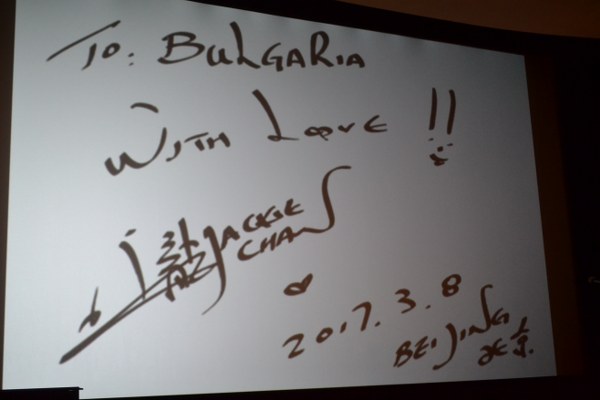 To: BULGARIA
WITH LOVE !!
成龍 JACKIE CHAN
2017. 3. 8
BEIJING
北京